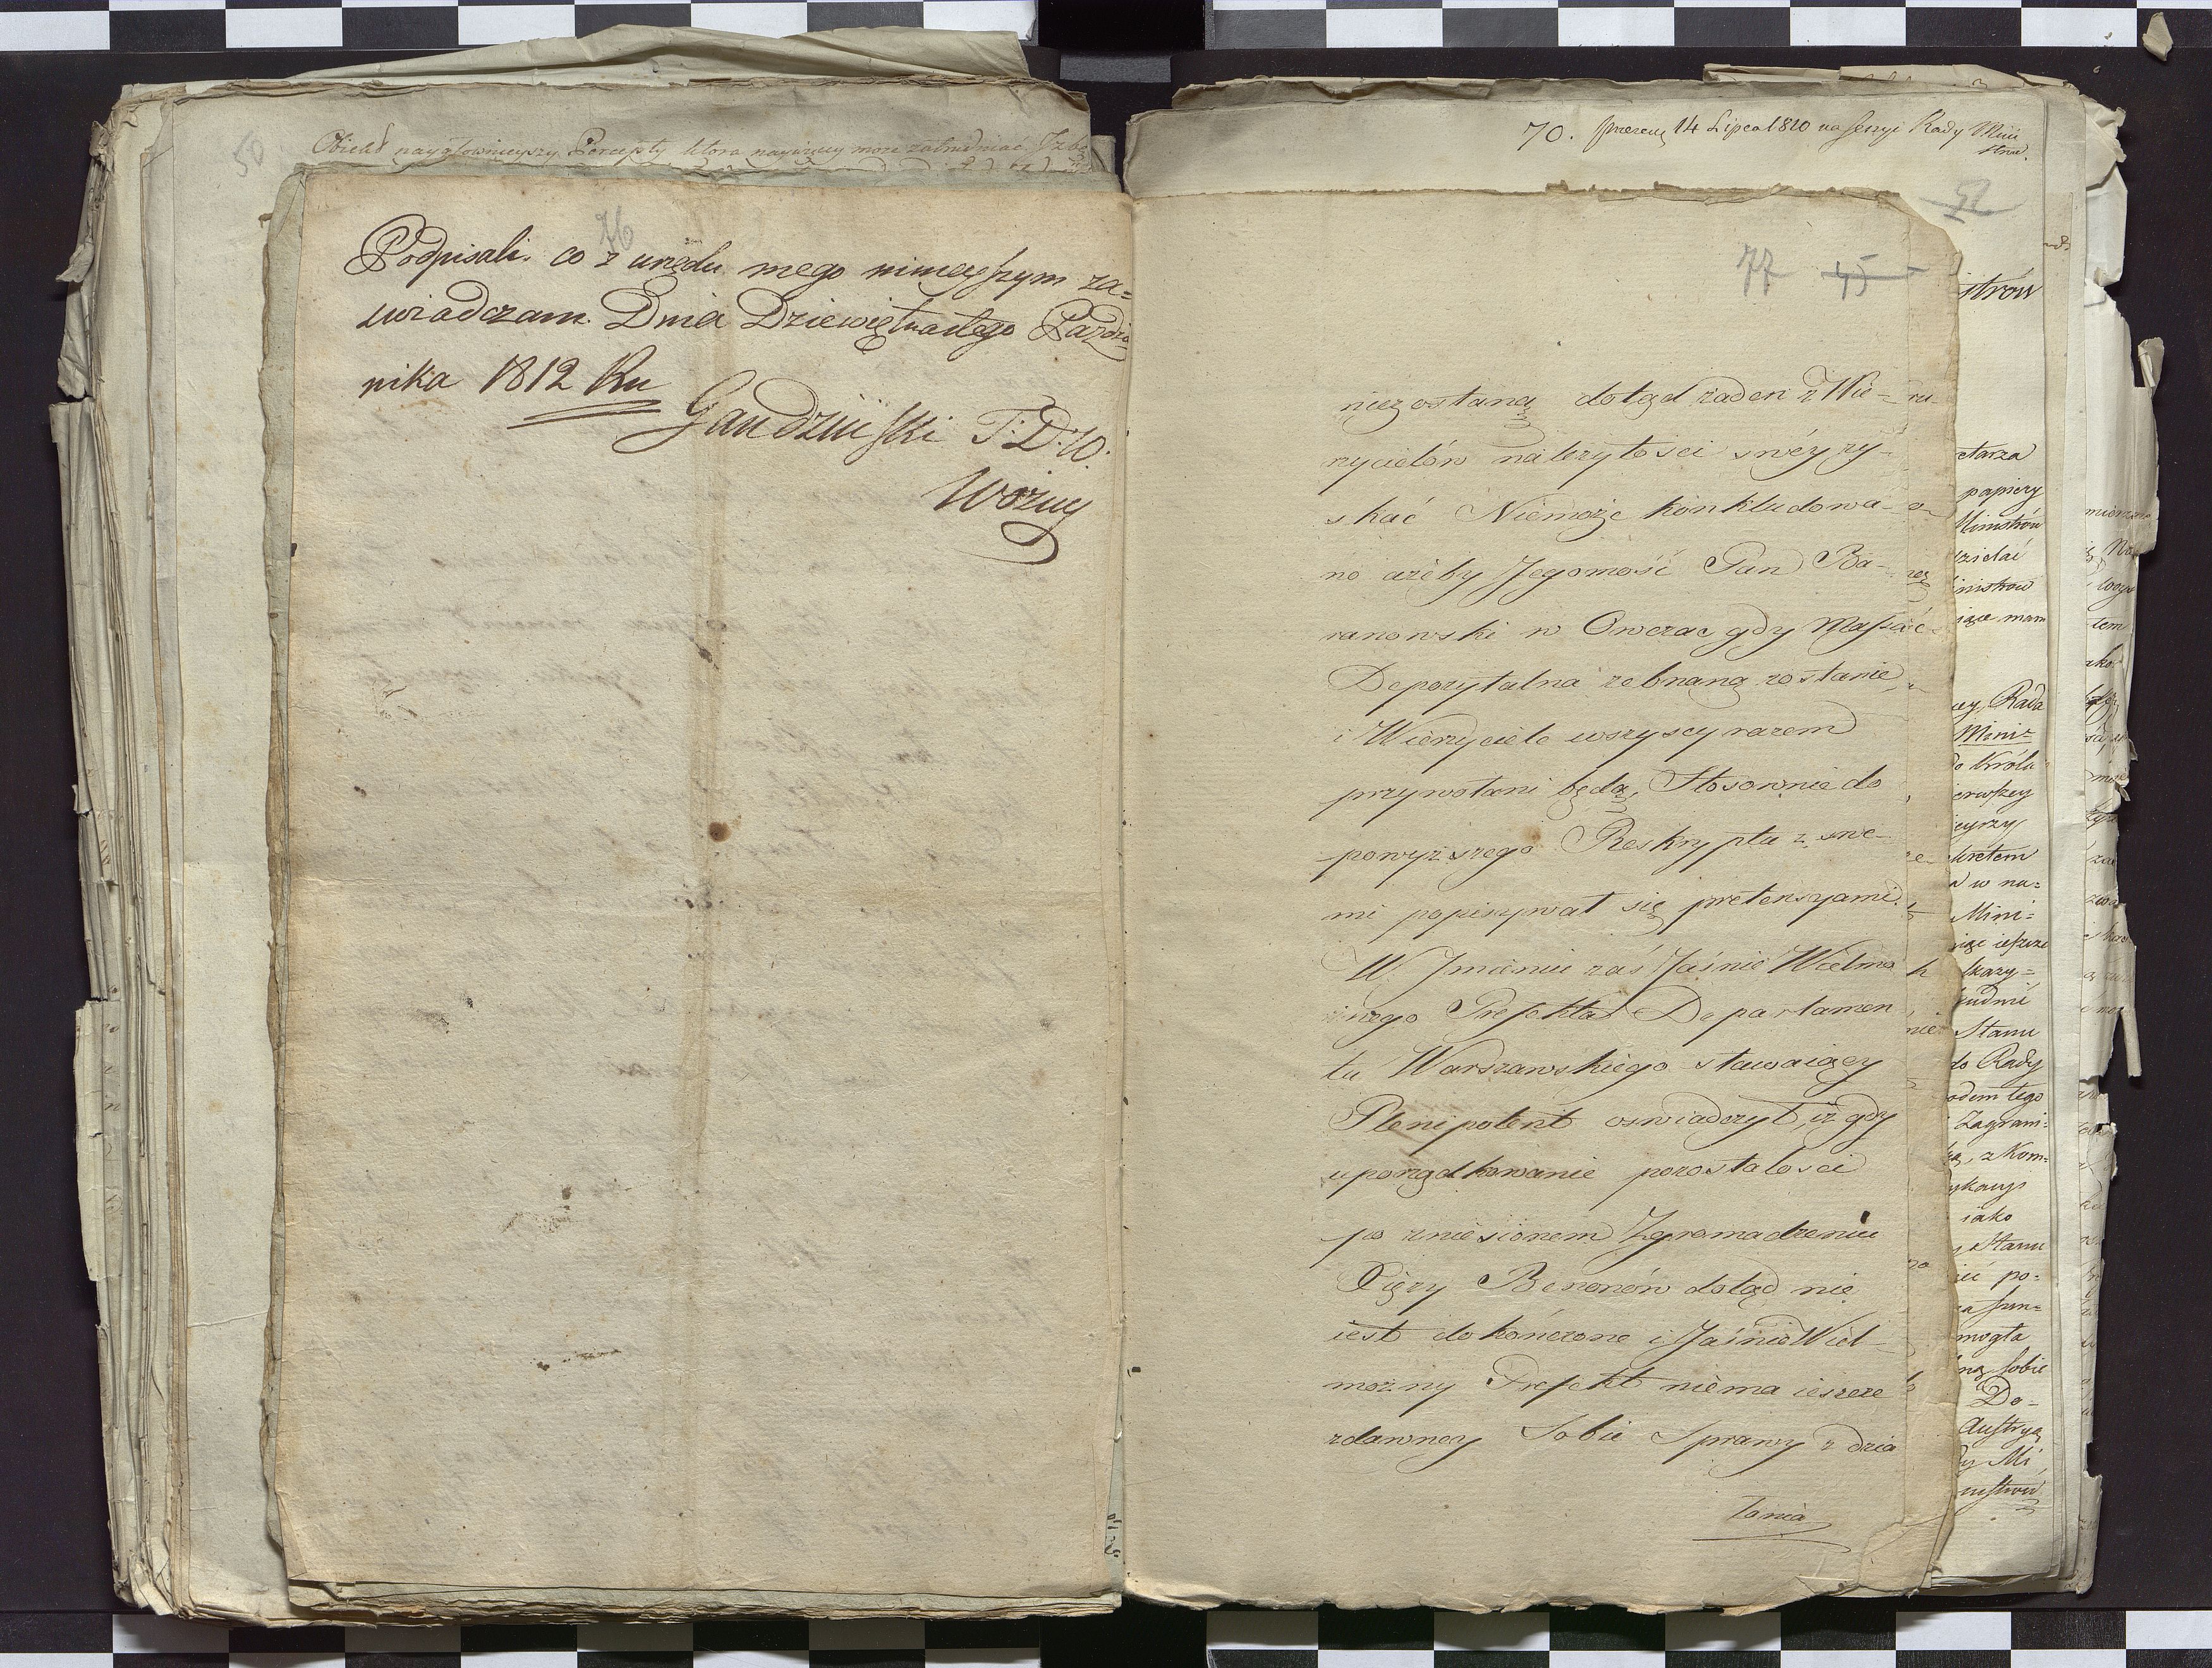 50
Obiekt naygłownieyszy Percepty ktora naywięcy może zatrudniać Izbę
76
Podpisali. co z urzędu mego ninieyszym za=
swiadczam. Dnia Dziewiętnastego Pazdzier
nika 1812 Ru
Gaudziński T: D. W.
Woźny
70. przeczy 14 Lipca 1810 na sessyi Rady Mini
strów.
52
77 45
niezostaną dotąd żaden z Wie-
rzycielów należytości swéy zy-
skać Niemoże konkludowa-
no ażeby Jegomość Pan Ba-
ranowski w Owczas gdy Massa
Depozytalna zebraną zostanie
i Wierzyciele wszyscy razem
przywołani będą, Stosownie do
powyższego Reskryptu z swe-
mi popisywał się pretensyami.
W Jmieniu zaś Jaśnie Wielmo
żnego Prefekta Departamen
tu Warszawskiego stawaiący
Plenipotent oswiadczył, iż gdy
uporządkowanie pozostałosci
po zniesionem Zgromadzeniu
Xięży Benonów dotąd nie
iest dokończone i Jaśnie Wiel-
możny Prefekt niema ieszcze
zdawney Sobie Sprawy z dzia
łania
istrów
etarza
papiery
Ministrów
dzielać
inistrow
iące mam
ey, Rada
Mini=
do Króla
erwszey
ieyszy
kretem
w na=
Mini=
więc ieszcze
kazy=
Stanu
do Rady
odem tego
Zagrani=
, z Kom=
iako
Stanu
ić po=
mogła
Sobie
Do-
Austryą
y Mi
nistrów